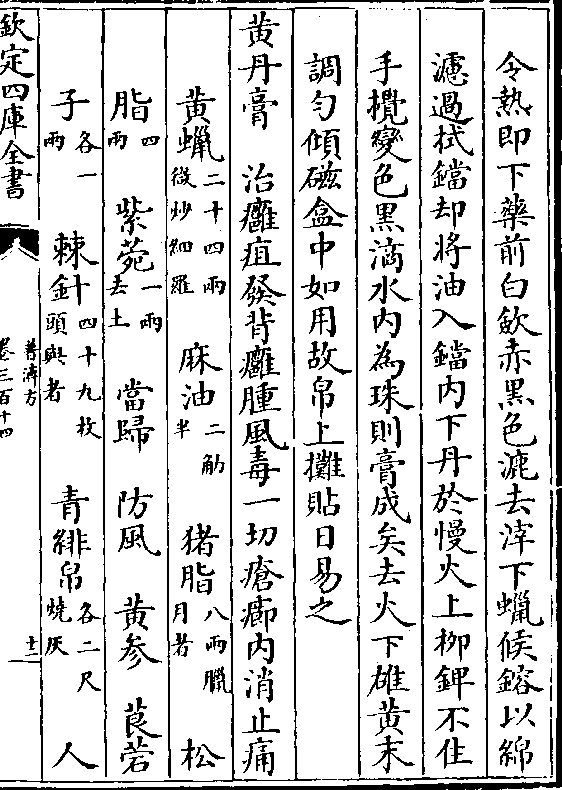 令熱即下藥前白斂赤黒色漉去滓下蠟候鎔以綿
濾過拭鐺却將油入鐺内下丹於慢火上栁鎞不住
手攪變色黒滴水内為珠則膏成矣去火下雄黄末
調勻傾磁盒中如用故帛上攤貼日易之
黄丹膏　治癰疽發背癰腫風毒一切瘡癤内消止痛
黄蠟二十四兩微炒細羅　麻油二觔半　猪脂八兩臘月者　松
脂四兩　紫菀一兩去土　當歸　防風　黄參　莨菪
子各一兩　棘針四十九枚頭㒷者　青緋帛各二尺燒灰　人
欽定四庫全書
普濟方
卷三百十四
十二